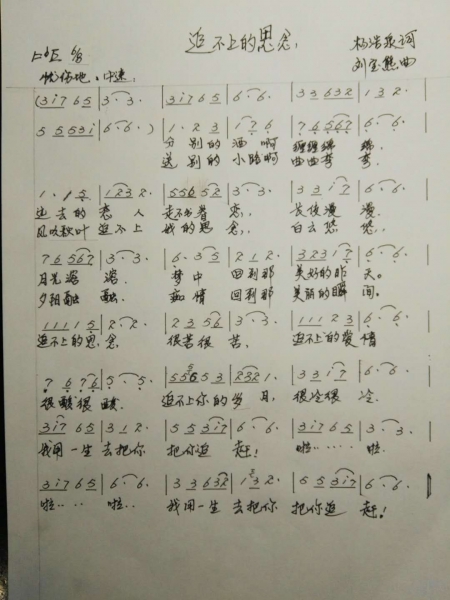 追不上的思念
1=♭E 6/8 杨浩泉词
忧伤地. 中速. 刘宝熊曲
(3 i 7 6 5 | 3. 3. | 3 i 7 6 5 | 6. 6. | 3 3 6 3 2 | 1 3 2.
5 5 5 3 i | 6. 6. ) | 1. 2 3 | 1 7 6 | 7 6 5 6 7 | 6. 6.
分别的酒啊 缠缠绵 绵.
送别的小路啊 曲曲弯 弯.
1. 1 5 | 1 2 3 2. | 5 5 6 5 2 | 3. 3. | 3 3 i 7 | 6. 6.
逝去的 恋人 走不出眷 恋. 长夜漫 漫.
风吹秋叶 追不上 我的思 念. 白云悠 悠.
7 6 5 6 7 | 3. 3. | 6. 3 5 | 2 1 2. | 3 2 3 1 7 | 6. 6.
月光溶 溶. 梦中 回到那 美好的昨 天.
夕阳融 融. 痴情 回到那 美丽的瞬 间.
1 1 1 1 5 | 2. 2. | 2 3 5 6 | 3. 3. | 1 1 1 2 3 | 6. 6.
追不上的思 念 很苦很 苦. 追不上的爱 情
7 6 7 6 | 5. 5. | 5 5 6 5 3 | 2 3 2 1. | 3 3 i 7 | 6. 6.
很酸很 酸. 追不上你的 岁 月, 很冷很 冷.
3 i 7 6 5 | 3 1 2. | 5 5 3 i 7 | 6. 6. | 3 i 7 6 5 | 3. 3.
我用一生 去把你 把你追 赶! 啦…… 啦.
3 i 7 6 5 | 6. 6. | 3 3 6 3 2 | 1 3 2. | 5 5 3 i 7 | 6. 6.
啦…… 啦.. 我用一生 去把你 把你追 赶!